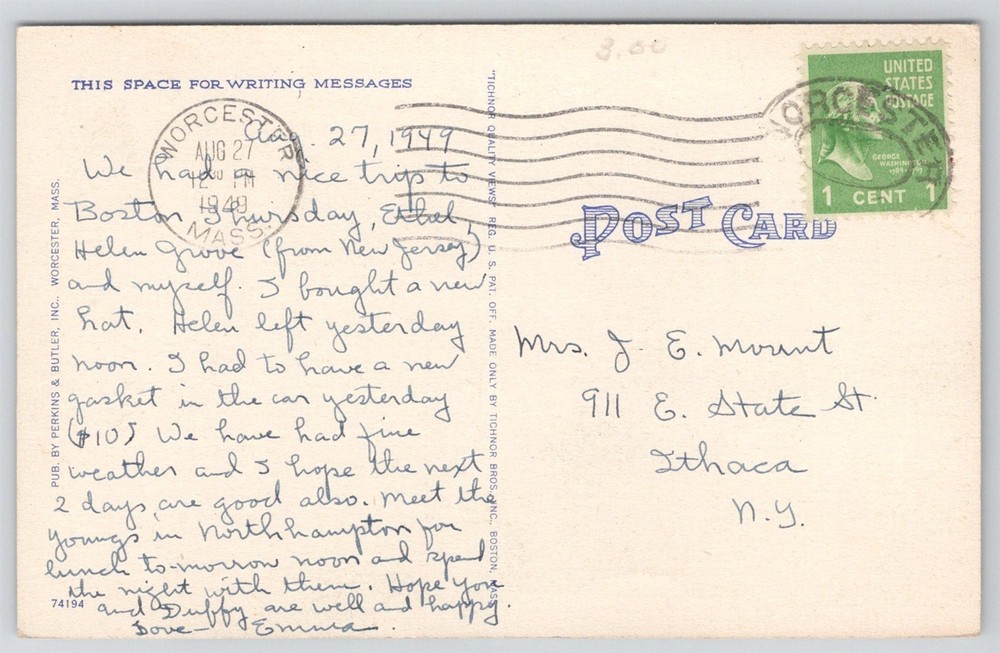 3.00
THIS SPACE FOR WRITING MESSAGES
WORCESTER
AUG 27
12 PM
1949
MASS.
Aug. 27, 1949
We had a nice trip to
Boston Thursday, Ethel,
Helen Grove (from New Jersey)
and myself. I bought a new
hat. Helen left yesterday
noon. I had to have a new
gasket in the car yesterday
($10) We have had fine
weather and I hope the next
2 days are good also. Meet the
Youngs in Northhampton for
lunch to-morrow noon and spend
the night with them. Hope you
and Duffy are well and happy.
Love - Emma.
74194
PUB. BY PERKINS & BUTLER, INC., WORCESTER, MASS.
"TICHNOR QUALITY VIEWS" REG. U. S. PAT. OFF. MADE ONLY BY TICHNOR BROS., INC., BOSTON, MASS.
POST CARD
UNITED
STATES
POSTAGE
GEORGE
WASHINGTON
1 CENT 1
WORCESTER
Mrs. J. E. Mount
911 E. State St.
Ithaca
N.Y.